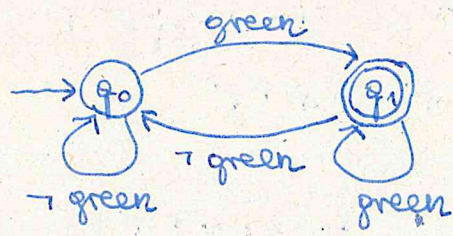 green
q0
q1
¬ green
¬ green
green